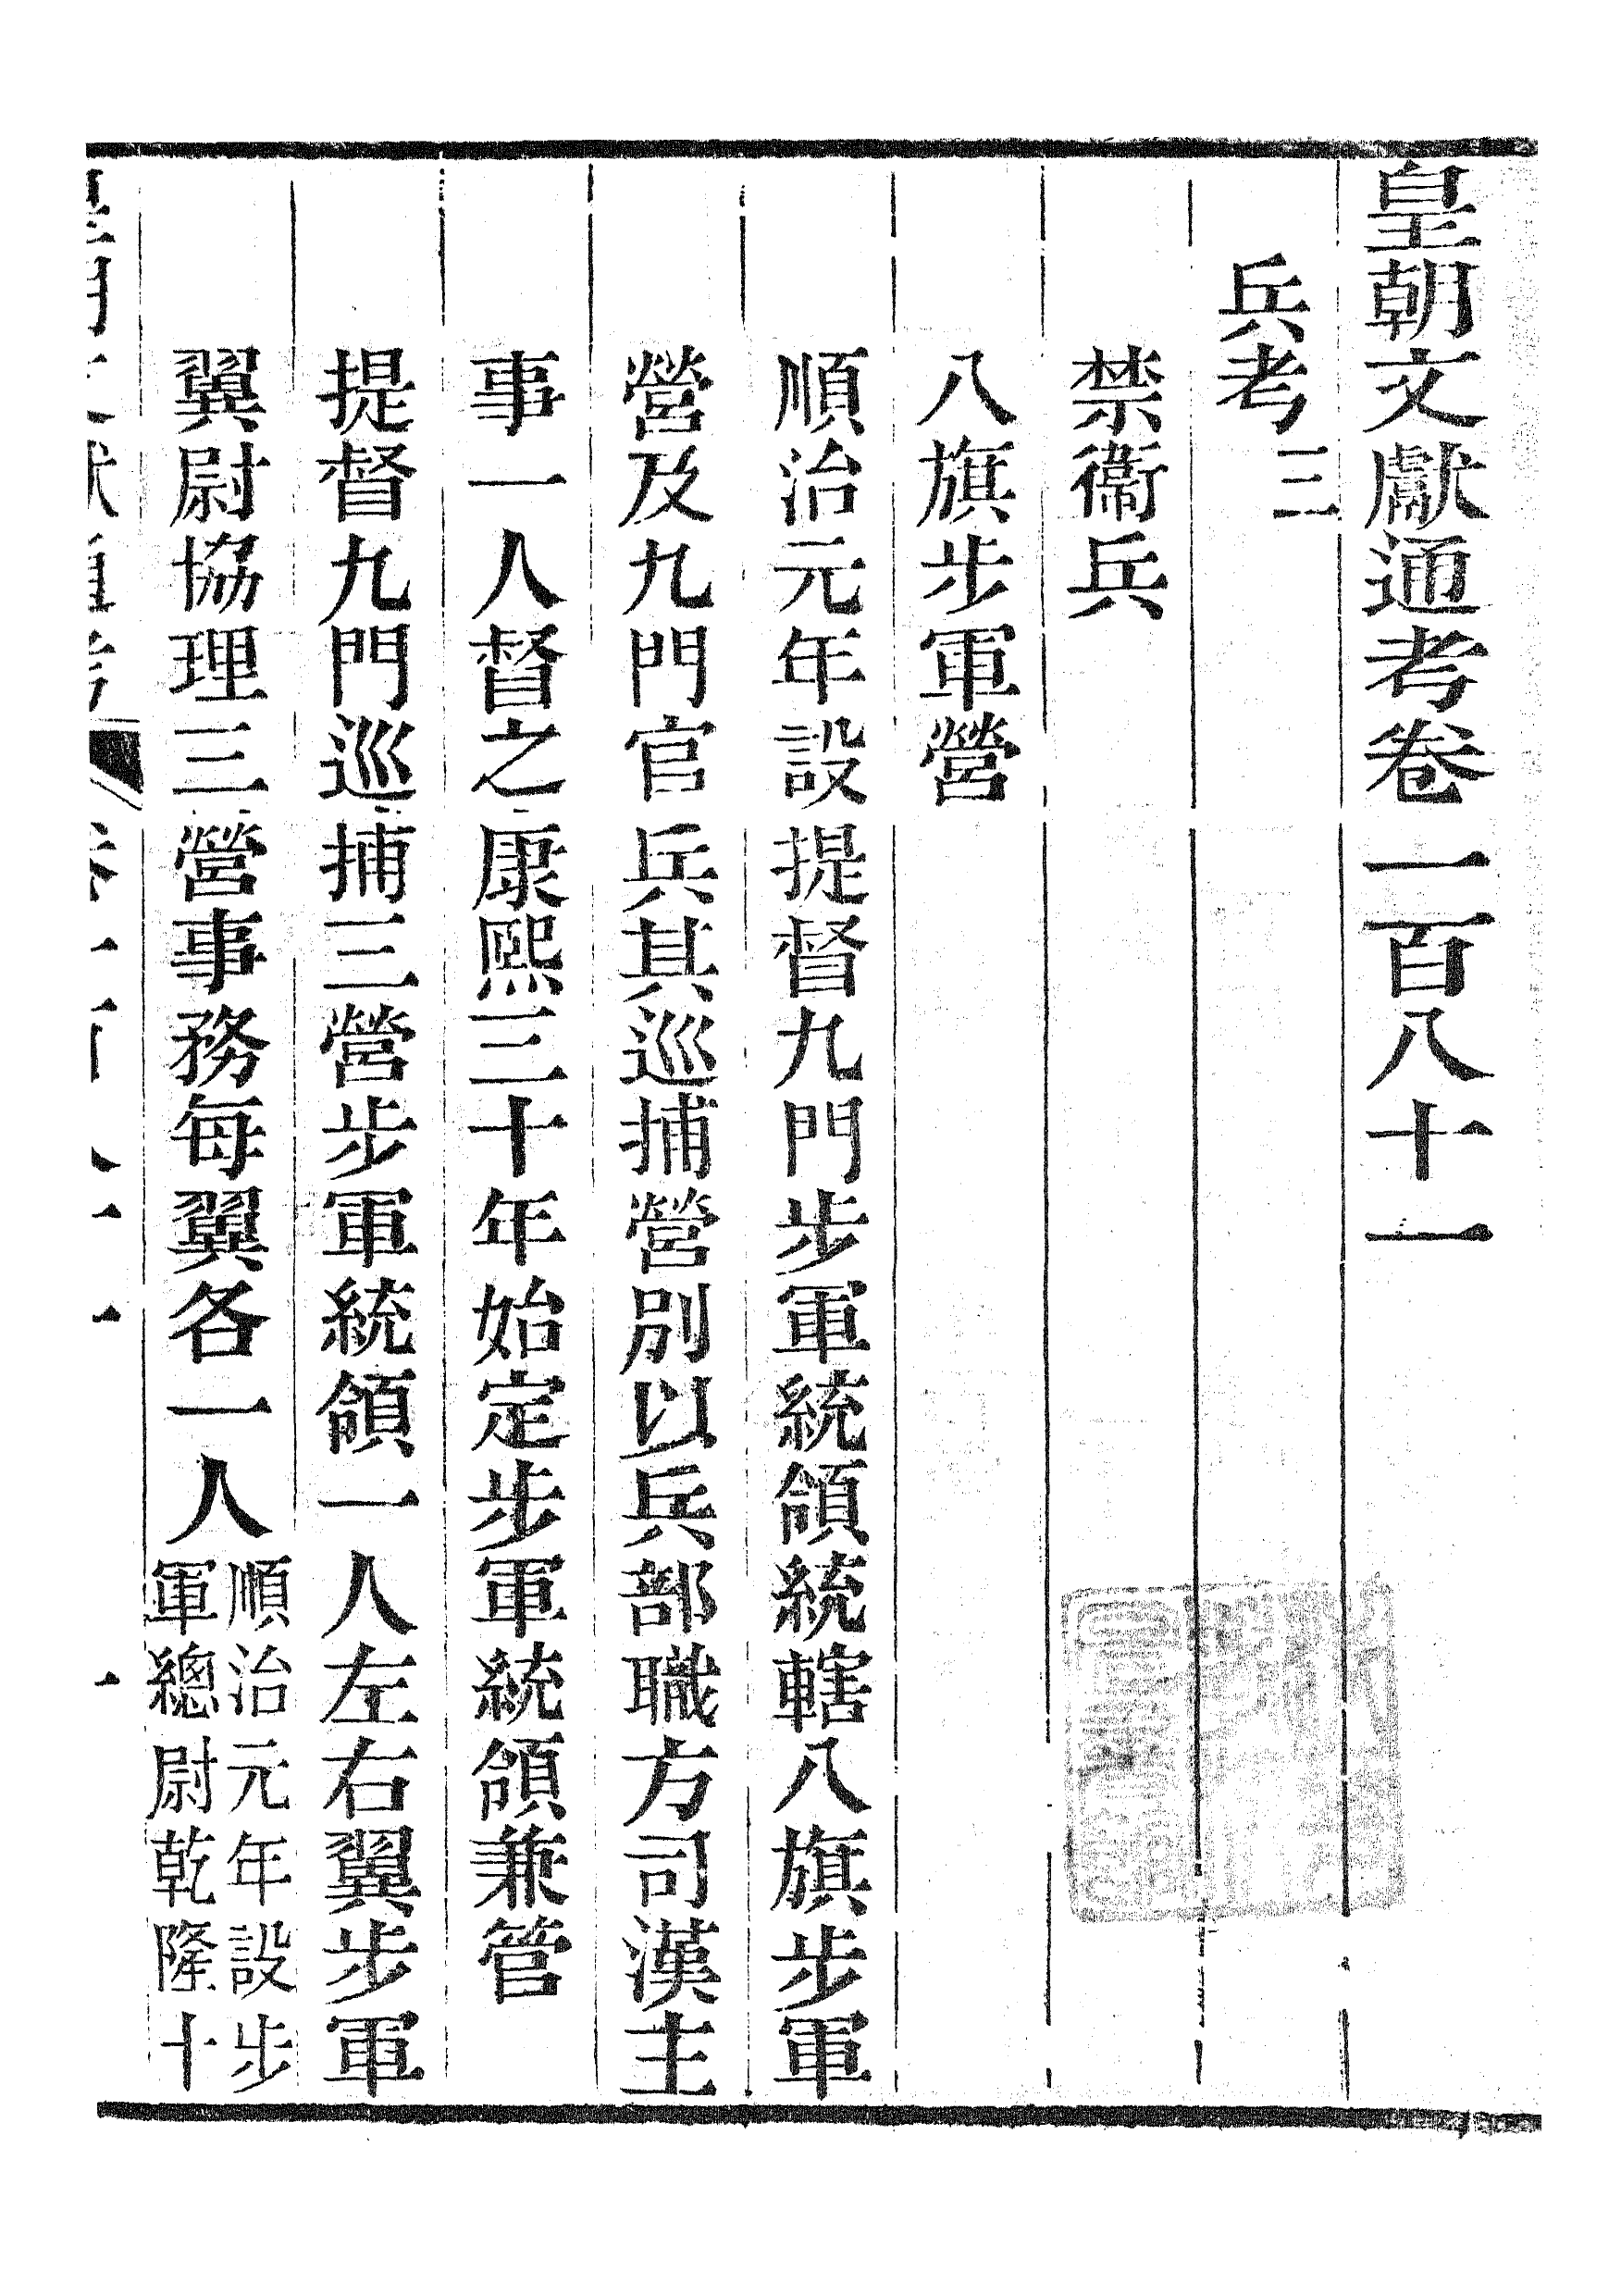 皇朝文獻通考卷一百八十一
兵考三
禁衞兵
八旗步軍營
順治元年設提督九門步軍統領統轄八旗步軍
營及九門官兵其巡捕營別以兵部職方司漢主
事一人督之康熙三十年始定步軍統領兼管
提督九門巡捕三營步軍統領一人左右翼步軍
翼尉協理三營事務每翼各一人順治元年設步
軍總尉乾隆十